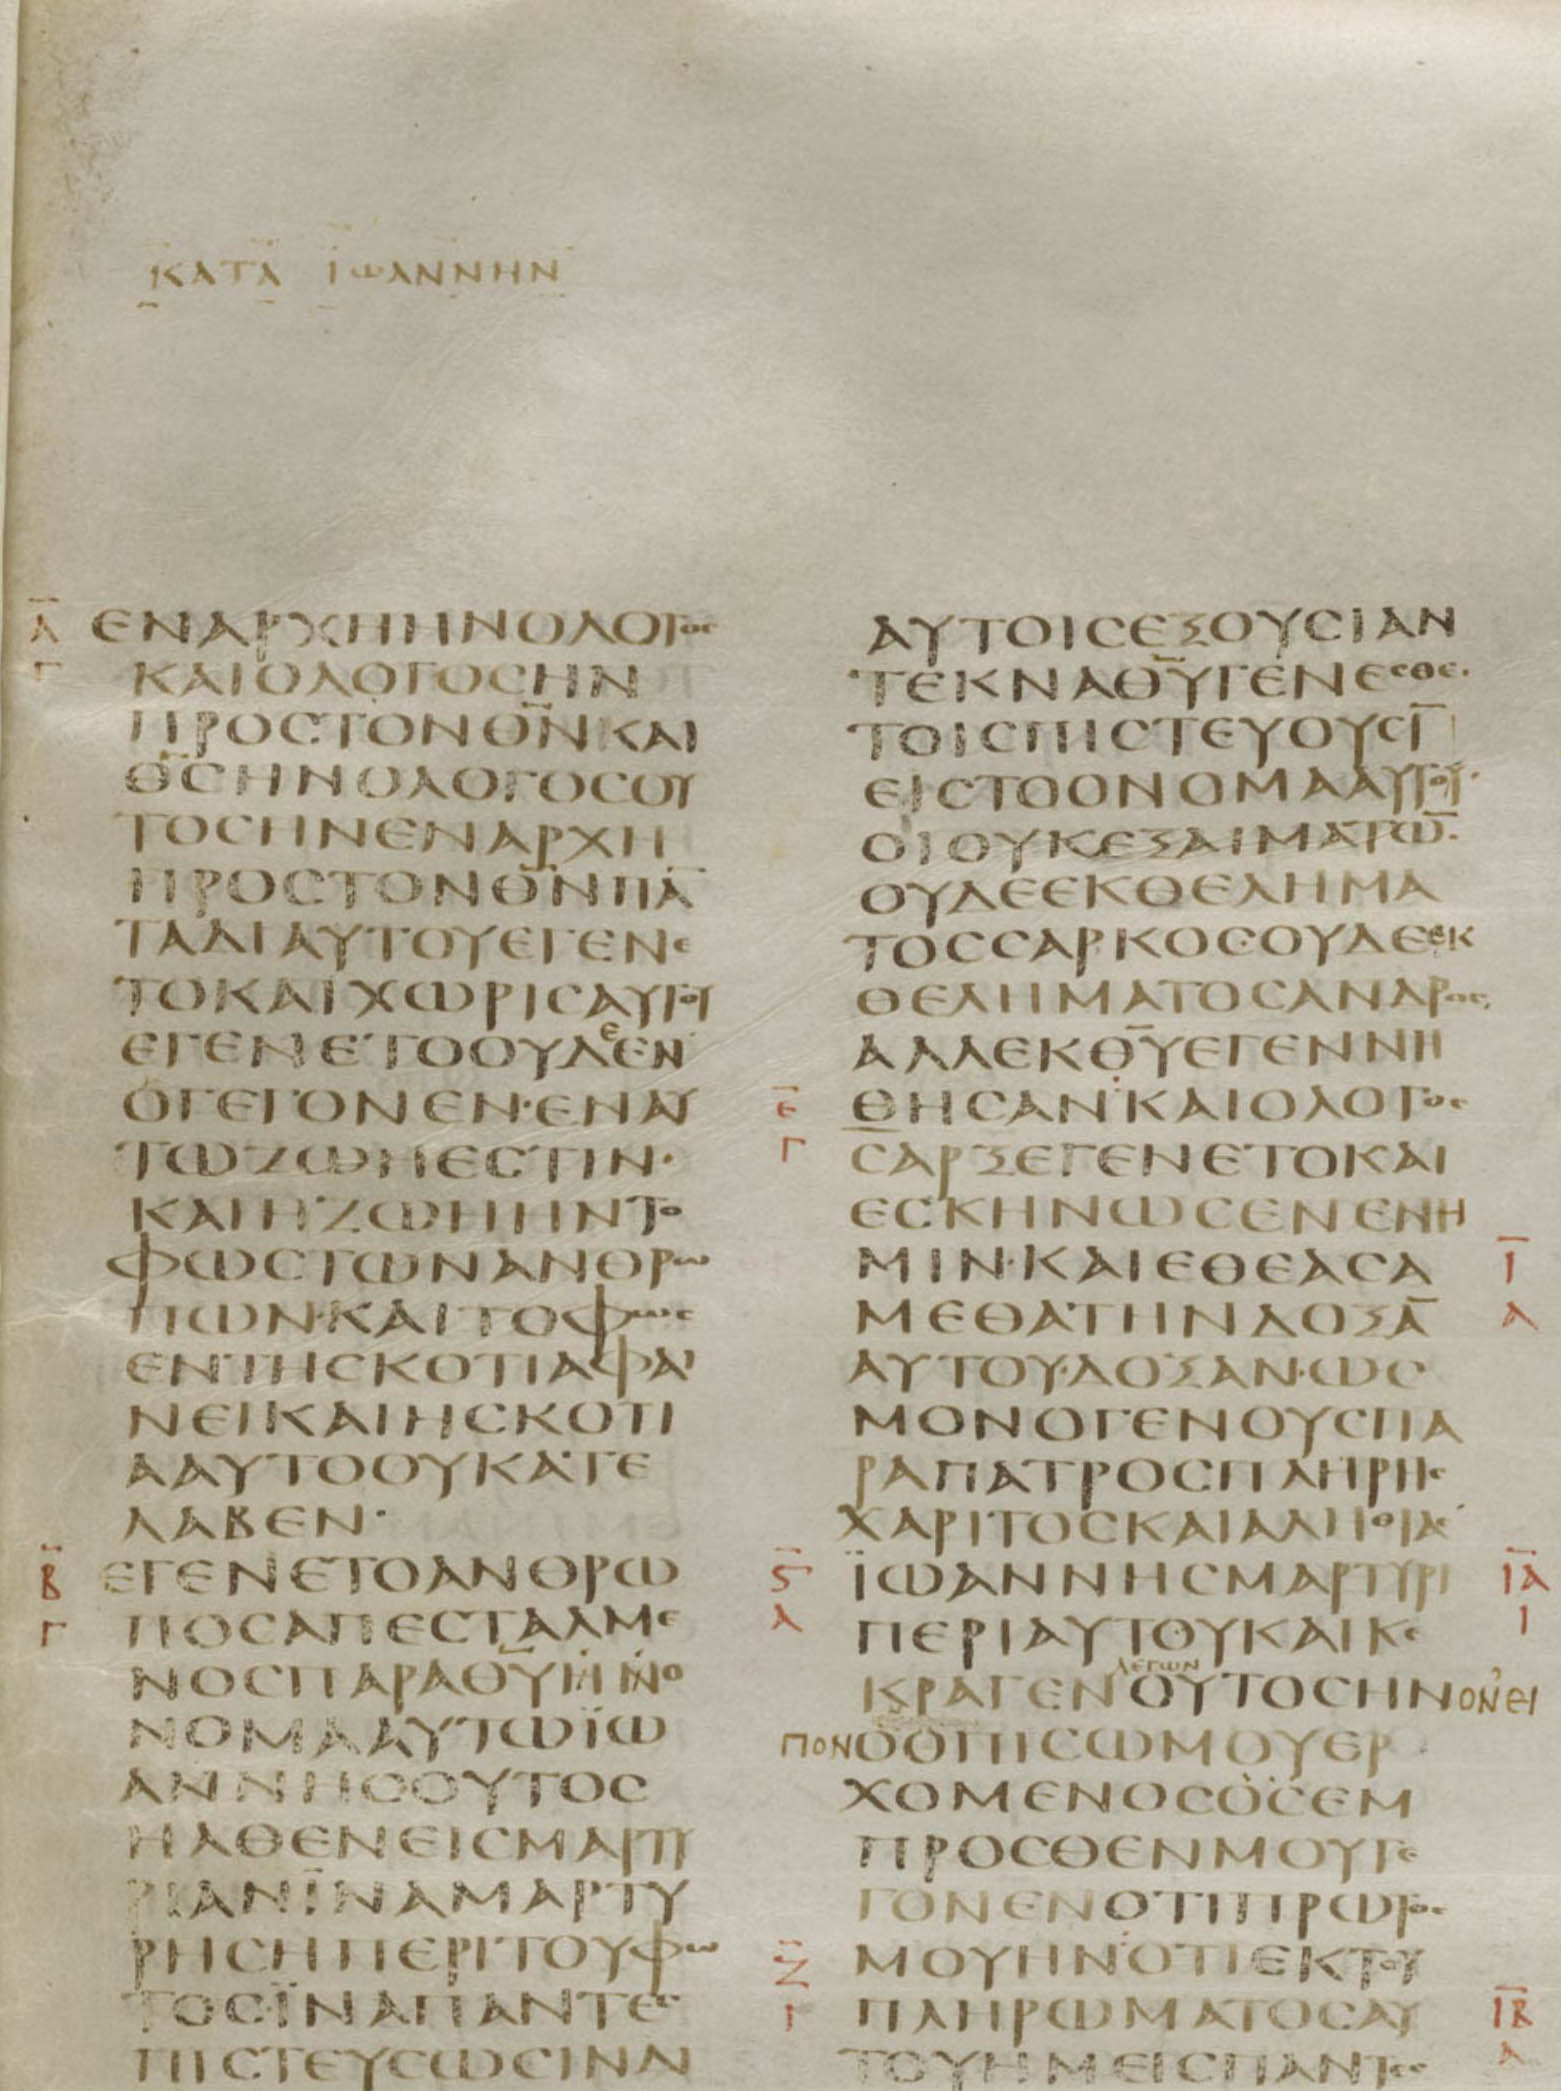 ΚΑΤΑ ΙΩΑΝΝΗΝ
Α̅
Γ
ΕΝΑΡΧΗΗΝΟΛΟΓΟϹ
ΚΑΙΟΛΟΓΟϹΗΝ
ΠΡΟϹΤΟΝΘ̅Ν̅ΚΑΙ
Θ̅Ϲ̅ΗΝΟΛΟΓΟϹΟΥ
ΤΟϹΗΝΕΝΑΡΧΗ
ΠΡΟϹΤΟΝΘ̅Ν̅ΠΑ̅
ΤΑΔΙΑΥΤΟΥΕΓΕΝΕ
ΤΟΚΑΙΧΩΡΙϹΑΥΤΟΥ
ΕΓΕΝΕΤΟΟΥΔΕΕΝ
ΟΓΕΓΟΝΕΝ·ΕΝΑΥ
ΤΩΖΩΗΕϹΤΙΝ·
ΚΑΙΗΖΩΗΗΝΤΟ
ΦΩϹΤΩΝΑΝΘΡΩ
ΠΩΝ·ΚΑΙΤΟΦΩϹ
ΕΝΤΗϹΚΟΤΙΑΦΑΙ
ΝΕΙΚΑΙΗϹΚΟΤΙ
ΑΑΥΤΟΟΥΚΑΤΕ
ΛΑΒΕΝ·
Β̅
Γ
ΕΓΕΝΕΤΟΑΝΘΡΩ
ΠΟϹΑΠΕϹΤΑΛΜΕ
ΝΟϹΠΑΡΑΘ̅Υ̅ΗΝΟ
ΝΟΜΑΑΥΤΩΪΩ
ΑΝΝΗϹΟΥΤΟϹ
ΗΛΘΕΝΕΙϹΜΑΡΤΥ
ΡΙΑΝΪΝΑΜΑΡΤΥ
ΡΗϹΗΠΕΡΙΤΟΥΦΩ
ΤΟϹΪΝΑΠΑΝΤΕϹ
ΠΙϹΤΕΥϹΩϹΙΝΔΙ
ΑΥΤΟΙϹΕΞΟΥϹΙΑΝ
ΤΕΚΝΑΘ̅Υ̅ΓΕΝΕϹΘΕ·
ΤΟΙϹΠΙϹΤΕΥΟΥϹΙ̅
ΕΙϹΤΟΟΝΟΜΑΑΥΤΟΥ·
ΟΙΟΥΚΕΞΑΙΜΑΤΩ̅·
ΟΥΔΕΕΚΘΕΛΗΜΑ
ΤΟϹϹΑΡΚΟϹΟΥΔΕΕΚ
ΘΕΛΗΜΑΤΟϹΑΝΔΡΟϹ
ΑΛΛΕΚΘ̅Υ̅ΕΓΕΝΝΗ
Ε̅
Γ
ΘΗϹΑΝ·ΚΑΙΟΛΟΓΟϹ
ϹΑΡΞΕΓΕΝΕΤΟΚΑΙ
ΕϹΚΗΝΩϹΕΝΕΝΗ
ΜΙΝ·ΚΑΙΕΘΕΑϹΑ
Ι̅
Α
ΜΕΘΑΤΗΝΔΟΞΑ̅
ΑΥΤΟΥ·ΔΟΞΑΝ·ΩϹ
ΜΟΝΟΓΕΝΟΥϹΠΑ
ΡΑΠΑΤΡΟϹΠΛΗΡΗϹ
ΧΑΡΙΤΟϹΚΑΙΑΛΗΘΙΑϹ
Ϛ̅
Α
ΪΩΑΝΝΗϹΜΑΡΤΥΡΙ
ΙΑ̅
Ι
ΠΕΡΙΑΥΤΟΥΚΑΙΚΕ
ΛΕΓΩΝ
ΚΡΑΓΕΝΟΥΤΟϹΗΝΟΝΕΙ
ΠΟΝΟΟΠΙϹΩΜΟΥΕΡ
ΧΟΜΕΝΟϹΟϹΕΜ
ΠΡΟϹΘΕΝΜΟΥΓΕ
ΓΟΝΕΝΟΤΙΠΡΩΤΟϹ
Ζ̅
Γ
ΜΟΥΗΝΟΤΙΕΚΤΟΥ
ΠΛΗΡΩΜΑΤΟϹΑΥ
ΙΒ̅
Α
ΤΟΥΗΜΕΙϹΠΑΝΤΕϹ